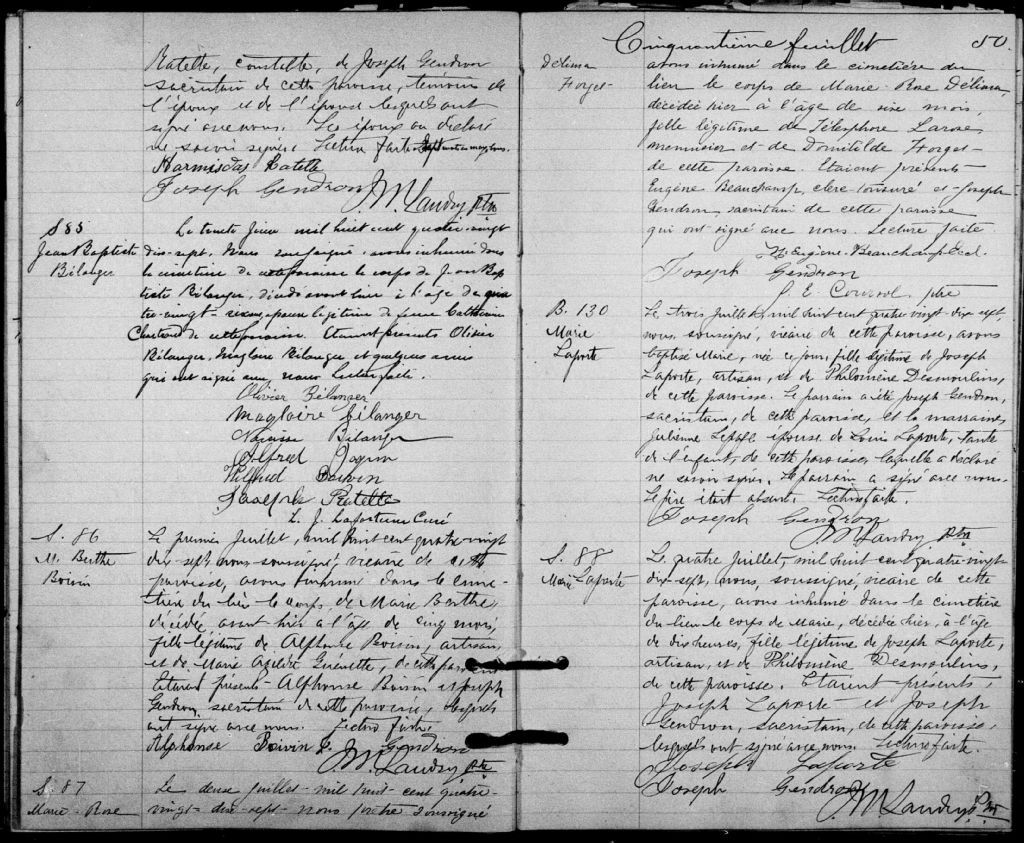 Ratelle, constable, de Joseph Gendron
sacristain de cette paroisse, témoins de
l'époux et de l'épouse lesquels ont
signé avec nous. Les époux ont déclaré
ne savoir signer. Lecture faite.
Hormisdas Ratelle
Joseph Gendron
J M Landry ptre
S 85
Jean Baptiste
Bélanger
Le trente Juin mil huit cent quatre-vingt
dix-sept, Nous soussigné, avons inhumé dans
le cimetière de cette paroisse le corps de Jean Bap
tiste Bélanger, décédé avant hier à l'âge de qua
tre-vingt- ans, époux légitime de feue Catherine
Chartrand de cette paroisse. Etaient présents Olivier
Bélanger, Magloire Bélanger et quelques amis
qui ont signé avec nous. Lecture faite.
Olivier Bélanger
Magloire Bélanger
Narcisse Bélanger
Alfred
Wilfrid Boivin
Ratelle
L. J. Laforturne Curé
S. 86
M. Berthe
Boivin
Le premier Juillet, mil huit cent quatre vingt
dix-sept nous soussigné, vicaire de cette
paroisse, avons inhumé dans le cime-
tière du lieu le corps de Marie Berthe,
décédée avant hier à l'âge de cinq mois,
fille légitime de Alphonse Boivin, artisan,
et de Marie Azilda Guénette, de cette paroisse
Etaient présents Alphonse Boivin et Joseph
Gendron, sacristain de cette paroisse, lesquels
ont signé avec nous. Lecture faite.
Alphonse Boivin J. Gendron
J M Landry ptre
S. 87
Marie-Rose
Le deux juillet mil huit cent quatre-
vingt-dix-sept nous prêtre soussigné
Cinquantième feuillet
50.
Délima
Forget
avons inhumé dans le cimetière du
lieu le corps de Marie-Rose Délima,
décédée hier à l'âge de six mois,
fille légitime de Télesphore Larose,
menuisier et de Domitilde Forget
de cette paroisse. Etaient présents
Eugène Beauchamp, clerc tonsuré et Joseph
Gendron, sacristain de cette paroisse
qui ont signé avec nous. Lecture faite.
H. Eugène Beauchamp Eccl.
Joseph Gendron
J. E. Coursol ptre
B. 130
Marie
Laporte
Le trois juillet, mil huit cent quatre vingt dix sept,
nous, soussigné, vicaire de cette paroisse, avons
baptisé Marie, née ce jour, fille légitime de Joseph
Laporte, artisan, et de Philomène Desmoulins,
de cette paroisse. Le parrain a été Joseph Gendron,
sacristain, de cette paroisse, et la marraine,
Julienne épouse de Louis Laporte, tante
de l'enfant, de cette paroisse, laquelle a déclaré
ne savoir signer. Le parrain a signé avec nous.
Le père était absent. Lecture faite.
Joseph Gendron
J M Landry ptre
S. 88
Marie Laporte
Le quatre Juillet, mil huit cent quatre-vingt
dix-sept, nous, soussigné, vicaire de cette
paroisse, avons inhumé dans le cimetière
du lieu le corps de Marie, décédée hier, à l'âge
de dix heures, fille légitime de Joseph Laporte,
artisan, et de Philomène Desmoulins,
de cette paroisse. Etaient présents,
Joseph Laporte et Joseph
Gendron, sacristain, de cette paroisse,
lesquels ont signé avec nous. Lecture faite.
Joseph Laporte
Joseph Gendron
J M Landry, Ptre